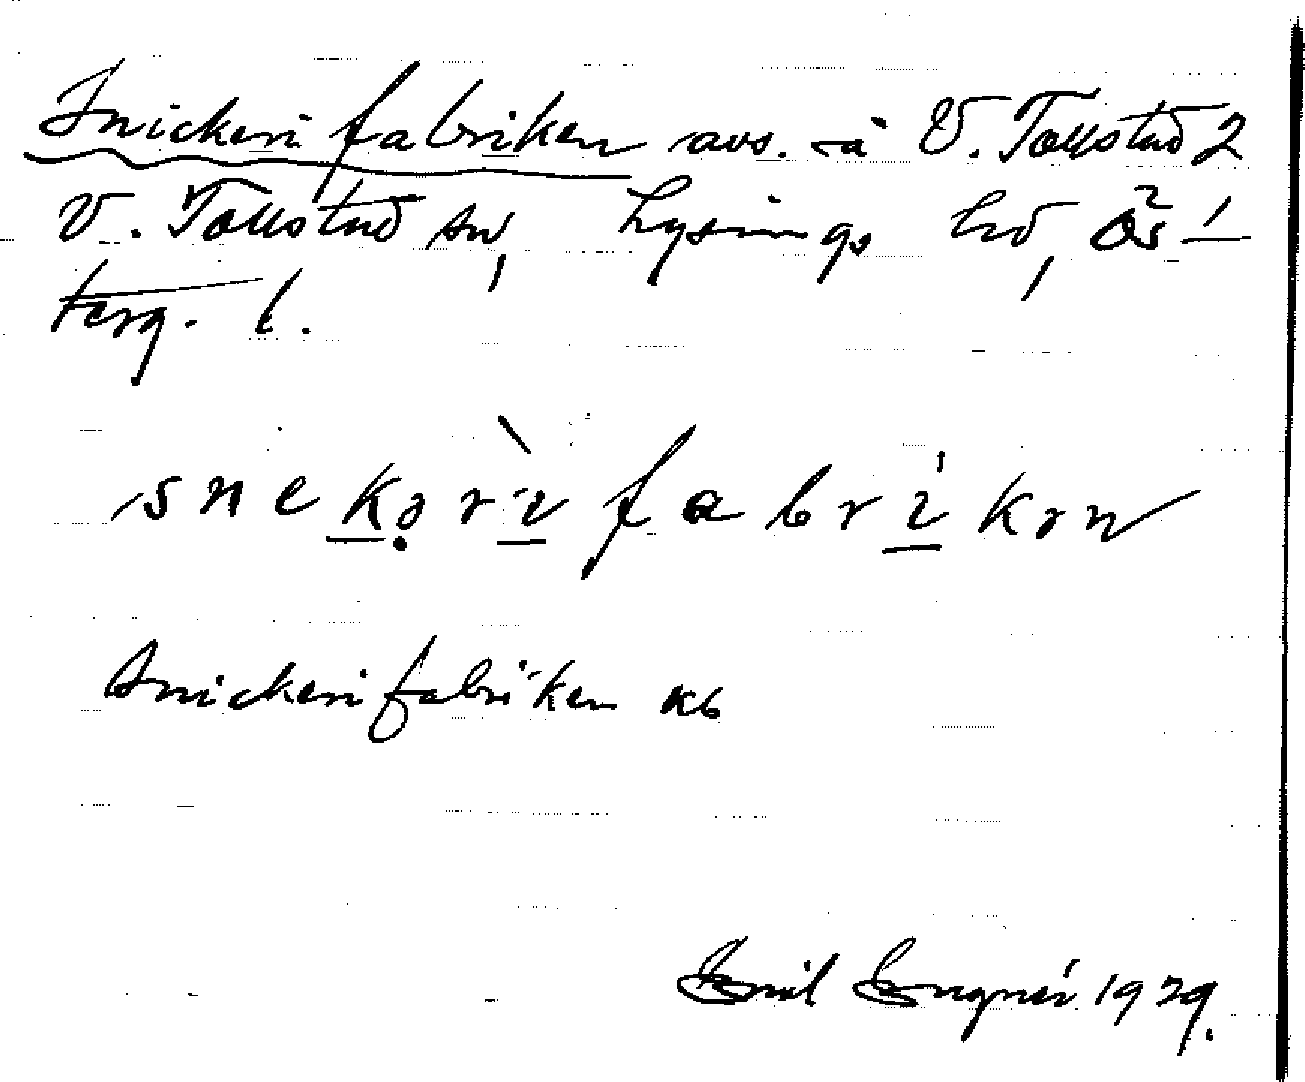 Snickerifabriken avs. å V. Tollstad 2
V. Tollstad sn, Lysings hd, Ös-
terg. l.
snekəri fabrikən
Snickerifabriken kb
Emil Engnér 1929.